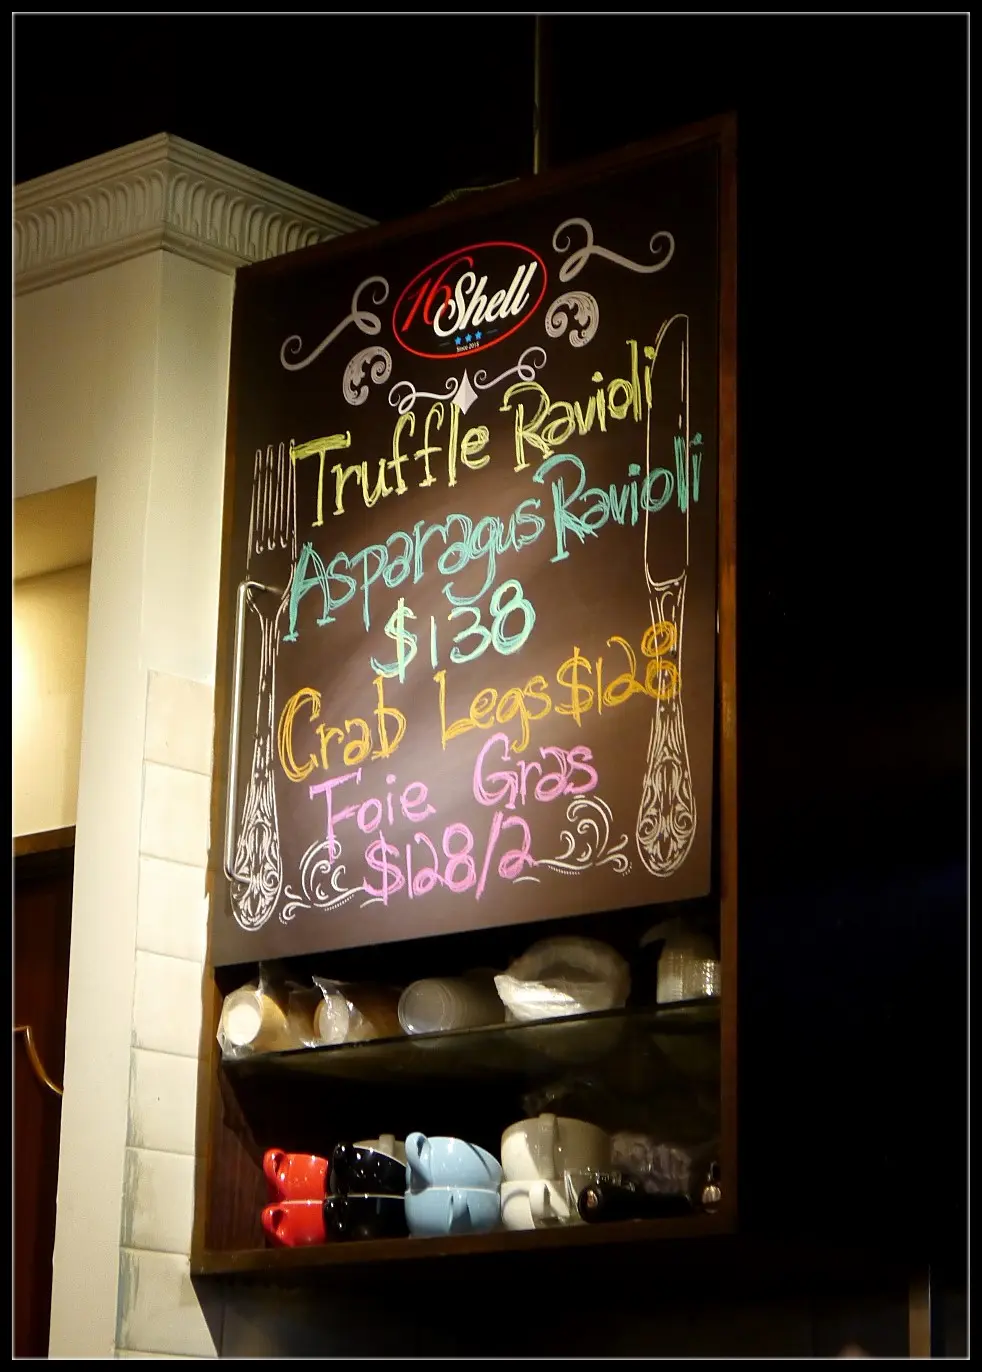 16 Shell
Since 2015
Truffle Ravioli
Asparagus Ravioli
$138
Crab Legs $128
Foie Gras
$128/2